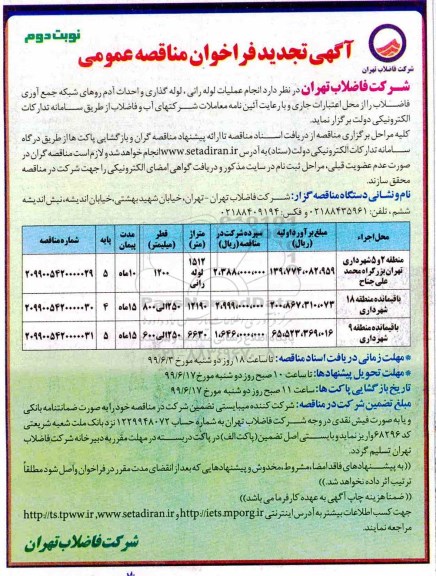 نوبت دوم
آگهی تجدید فراخوان مناقصه عمومی
شرکت فاضلاب تهران
شرکت فاضلاب تهران در نظر دارد انجام عملیات لوله رانی، لوله گذاری و احداث آدم روهای شبکه جمع آوری
فاضلاب را از محل اعتبارات جاری و با رعایت آئین نامه معاملات شرکتهای آب و فاضلاب از طریق سامانه تدارکات
الکترونیکی دولت برگزار نماید.
کلیه مراحل برگزاری مناقصه از دریافت اسناد مناقصه تا ارائه پیشنهاد مناقصه گران و بازگشایی پاکت ها از طریق درگاه
سامانه تدارکات الکترونیکی دولت (ستاد) به آدرس www.setadiran.ir انجام خواهد شد و لازم است مناقصه گران در
صورت عدم عضویت قبلی، مراحل ثبت نام در سایت مذکور و دریافت گواهی امضای الکترونیکی را جهت شرکت در مناقصه
محقق سازند.
نام و نشانی دستگاه مناقصه گزار: شرکت فاضلاب تهران - تهران، خیابان شهید بهشتی، خیابان اندیشه، نبش اندیشه
ششم، تلفن: ۰۲۱۸۸۴۳۵۹۶۱ و فکس: ۰۲۱۸۸۴۰۹۱۹۴
محل اجراء | مبلغ برآورد اولیه (ریال) | سپرده شرکت در مناقصه (ریال) | متراژ (متر) | قطر (میلیمتر) | مدت پیمان | پایه | شماره مناقصه
منطقه ۲ و ۵ شهرداری تهران بزرگراه محمد علی جناح | ۱۳۹،۷۷۴،۰۸۲،۹۵۹ | ۲،۳۸۸،۰۰۰،۰۰۰ | ۱۵۱۲ لوله رانی | ۱۲۰۰ | ۱۰ماه | ۵ | ۲۰۹۹۰۰۵۴۲۰۰۰۰۲۹
باقیمانده منطقه ۱۸ شهرداری | ۲۰۰،۸۶۷،۳۱۰،۰۷۳ | ۲،۹۹۹،۰۰۰،۰۰۰ | ۱۲۱۹۰ | ۲۵۰ الی ۸۰۰ | ۱۵ماه | ۴ | ۲۰۹۹۰۰۵۴۲۰۰۰۰۳۰
باقیمانده منطقه ۹ شهرداری | ۶۵،۵۲۳،۳۶۹،۰۱۶ | ۱،۶۴۶،۰۰۰،۰۰۰ | ۶۶۳۰ | ۲۵۰ الی ۶۰۰ | ۱۵ماه | ۵ | ۲۰۹۹۰۰۵۴۲۰۰۰۰۳۱
* مهلت زمانی دریافت اسناد مناقصه: تا ساعت ۱۸ روز دوشنبه مورخ ۹۹/۶/۳
* مهلت تحویل پیشنهادها: تا ساعت ۱۰ صبح روز دوشنبه مورخ ۹۹/۶/۱۷
تاریخ بازگشایی پاکت ها: ساعت ۱۱ صبح روز دوشنبه مورخ ۹۹/۶/۱۷
مبلغ تضمین شرکت در مناقصه: شرکت کننده میبایستی تضمین شرکت در مناقصه خود را به صورت ضمانتنامه بانکی
و یا به صورت فیش نقدی در وجه شرکت فاضلاب تهران به شماره حساب ۱۲۲۹۹۴۸۰۷۲ نزد بانک ملت شعبه شریعتی
کد ۶۸۲۹۶ واریز نماید و بایستی اصل تضمین (پاکت الف) در پاکت دربسته در مهلت مقرر به دبیرخانه شرکت فاضلاب
تهران تسلیم گردد.
((به پیشنهادهای فاقد امضا، مشروط، مخدوش و پیشنهادهایی که بعد از انقضای مدت مقرر در فراخوان واصل شود مطلقاً
ترتیب اثر داده نخواهد شد.))
((ضمنا هزینه چاپ آگهی به عهده کارفرما می باشد))
جهت کسب اطلاعات بیشتر به آدرس اینترنتی http://iets.mporg.ir و www.setadiran.ir، http://ts.tpww.ir
مراجعه نمایند.
شرکت فاضلاب تهران